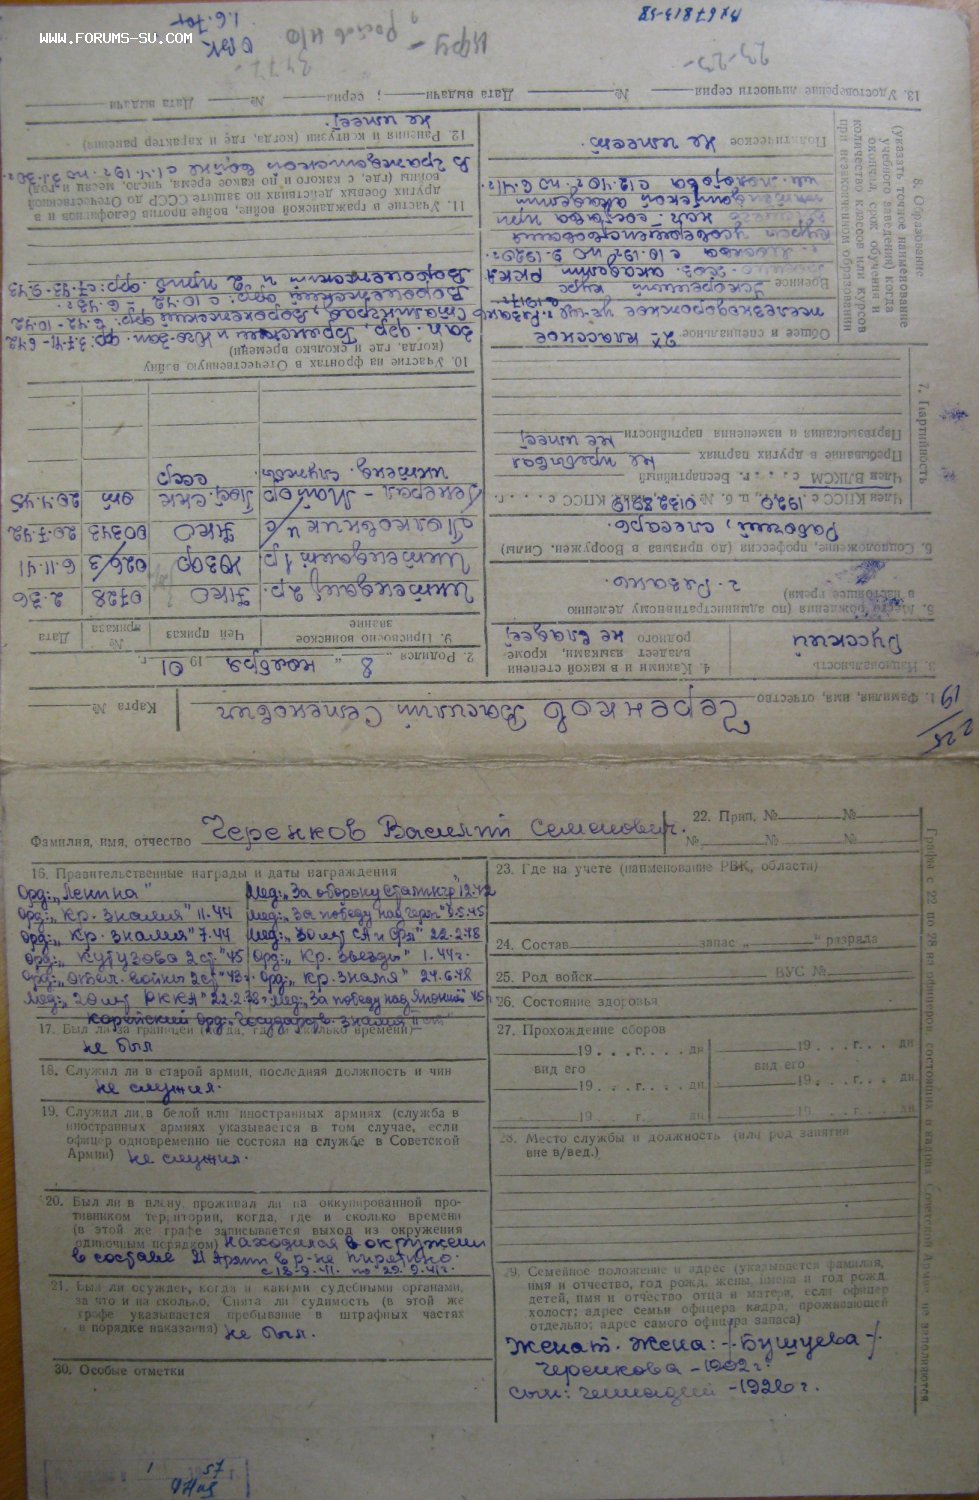 WWW.FORUMS-SU.COM
1.6.70г
ОВК
Карта №
1. Фамилия, имя, отчество Черенков Василий Семенович
225
19
2. Родился „ 8 “ ноября 1901 г.
3. Национальность Русский
4. Какими и в какой степени владеет языками, кроме родного не владеет
5. Место рождения (по административному делению в настоящее время)
г. Рязань.
6. Соцположение, профессия (до призыва в Вооружен. Силы)
Рабочий, слесарь.
7. Партийность
Член КПСС с 1920 г., п. б. № 01328919, канд. КПСС с . . . . г.
Член ВЛКСМ с . . . г. Беспартийный
Пребывание в других партиях не пребывал
Партвзыскания и изменения партийности не имеет
8. Образование (указать точное наименование учебного заведения) когда окончил, срок обучения и количество классов или курсов при незаконченном образовании
Общее и специальное 2х классное
железнодорожное училище г. Рязань
в 1917г.
Военное Ускоренный курс
академии РККА
г. Москва с 10.19г по 9.1920г.
курсы усовершенствования
нач. состава при
академии
им. Молотова с 12.40г по 6.41г.
Политическое Не имеет.
9. Присвоено воинское звание
Чей приказ
№ приказа
Дата
Интендант 2 р. НКО 0728 2.36
Интендант 1 р ЮЗФ 026/3 6.11.41
Полковник и/с НКО 00343 20.7.42
Генерал-Майор Пост. СНК от 20.4.45
интенд. службы. СССР
10. Участие на фронтах в Отечественную войну
(когда, где и сколько времени)
Зап. фр, Брянский и Юго-Зап. фр: 3.7.41 – 6.42
Сталинград, Воронежский фр: 6.42 – 10.42
Воронежский фр: с 10.42
Воронежский и 2 приб. фр: с 7.43 – 9.43
11. Участие в гражданской войне, войне против белофинов и в других боевых действиях по защите СССР до Отечественной войны (где, с какого и по какое время, число, месяц и год)
В гражданской войне с 1.4.19г по
12. Ранения и контузии (когда, где и характер ранения)
Не имеет.
13. Удостоверение личности серия № Дата выдачи ; серия № Дата выдачи
Фамилия, имя, отчество Черенков Василий Семенович.
22. Прип. № №
№ № №
16. Правительственные награды и даты награждения
Орд: „Ленина“ Мед: „За оборону Сталингр“ 12.42
Орд: „Кр. знамя“ 11.44 Мед: „За победу над Герм“ 9.5.45
Орд: „Кр. знамя“ 7.44 Мед: „30 лет СА и Фл“ 22.2.48
Орд: „Кутузова 2 ст“ 45 Орд: „Кр. Звезды“ 1.44г.
Орд: „Отеч. войны 2 ст“ 43г. Орд: „Кр. знамя“ 24.6.48
Мед: „20 лет РККА“ 22.2.38г. Мед: „За победу над Японией“ 45
Корейский Орд: „Государств. знамя
17. Был ли за границей (когда, где и сколько времени)
не был
18. Служил ли в старой армии, последняя должность и чин
не служил.
19. Служил ли в белой или иностранных армиях (служба в
иностранных армиях указывается в том случае, если
офицер одновременно не состоял на службе в Советской
Армии) не служил.
20. Был ли в плену, проживал ли на оккупированной про-
тивником территории, когда, где и сколько времени
(в этой же графе записывается выход из окружения
одиночным порядком) находился в окружении
в составе 21 Армии в р-не Пирятино.
с 18.9.41. по 29.9.41г.
21. Был ли осужден, когда и какими судебными органами,
за что и на сколько. Снята ли судимость (в этой же
графе указывается пребывание в штрафных частях
в порядке наказания) не был.
30. Особые отметки
23. Где на учете (наименование РВК, области)
24. Состав запас „ “ разряда
25. Род войск ВУС №
26. Состояние здоровья
27. Прохождение сборов
19 . . . г. . . . дн 19 . . . г. . . . дн
вид его вид его
19 . . . г. . . . дн 19 . . . г. . . . дн
19 . . . г. . . . дн 19 . . . г. . . . дн
28. Место службы и должность (или род занятия
вне в/вед.)
29. Семейное положение и адрес (указывается фамилия,
имя и отчество, год рожд. жены, имена и год рожд.
детей, имя и отчество отца и матери, если офицер
холост; адрес семьи офицера кадра, проживающей
отдельно; адрес самого офицера запаса)
Женат. Жена: (Бушуева)
Черенкова – 1902г.
сын: Геннадий – 1926г.
Графы с 22 по 28 на офицеров, состоящих в кадрах Советской Армии, не заполняются